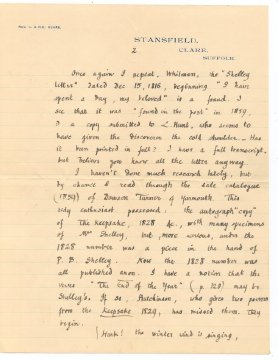 STANSFIELD,
CLARE,
SUFFOLK.
2
Once again I repeat, Whitman, the "Shelley
letter" dated Dec 15, 1816, beginning "I have
spent a day, my beloved" is a fraud. I
see that it was "found in the post" in 1859,
& a copy submitted to L. Hunt, who seems to
have given the discoverer the cold shoulder. Has
it been printed in full? I have a full transcript,
but believe you know all the letter anyway.
I haven't done much research lately, but
by chance I read through the sale catalogue
(1859) of Dawson Turner of Yarmouth. This
enthusiast possessed the autograph copy of
The Keepsake, 1828 &c, with many specimens
of Mrs Shelley, but more curious, under the
1828 number was a piece in the hand of
P. B. Shelley. Now the 1828 number was
all published anon. I have a notion that the
verses "The End of the Year" (p. 129) may be
Shelley's. If so, Hutchinson, who gives two poems
from the Keepsake 1829, has missed them. They
begin.
Hark! the winter wind is singing,